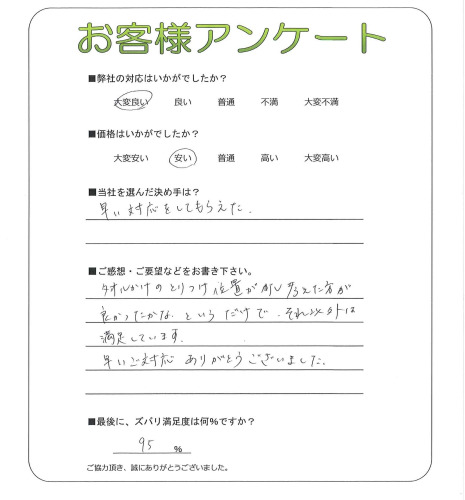 お客様アンケート
■弊社の対応はいかがでしたか？
大変良い 良い 普通 不満 大変不満
■価格はいかがでしたか？
大変安い 安い 普通 高い 大変高い
■当社を選んだ決め手は？
早い対応をしてもらえた.
■ご感想・ご要望などをお書き下さい。
タオルかけのとりつけ位置が少し考えた方が
良かったかな というだけで、それ以外は
満足しています.
早いご対応 ありがとうございました.
■最後に、ズバリ満足度は何%ですか？
95 %
ご協力頂き、誠にありがとうございました。